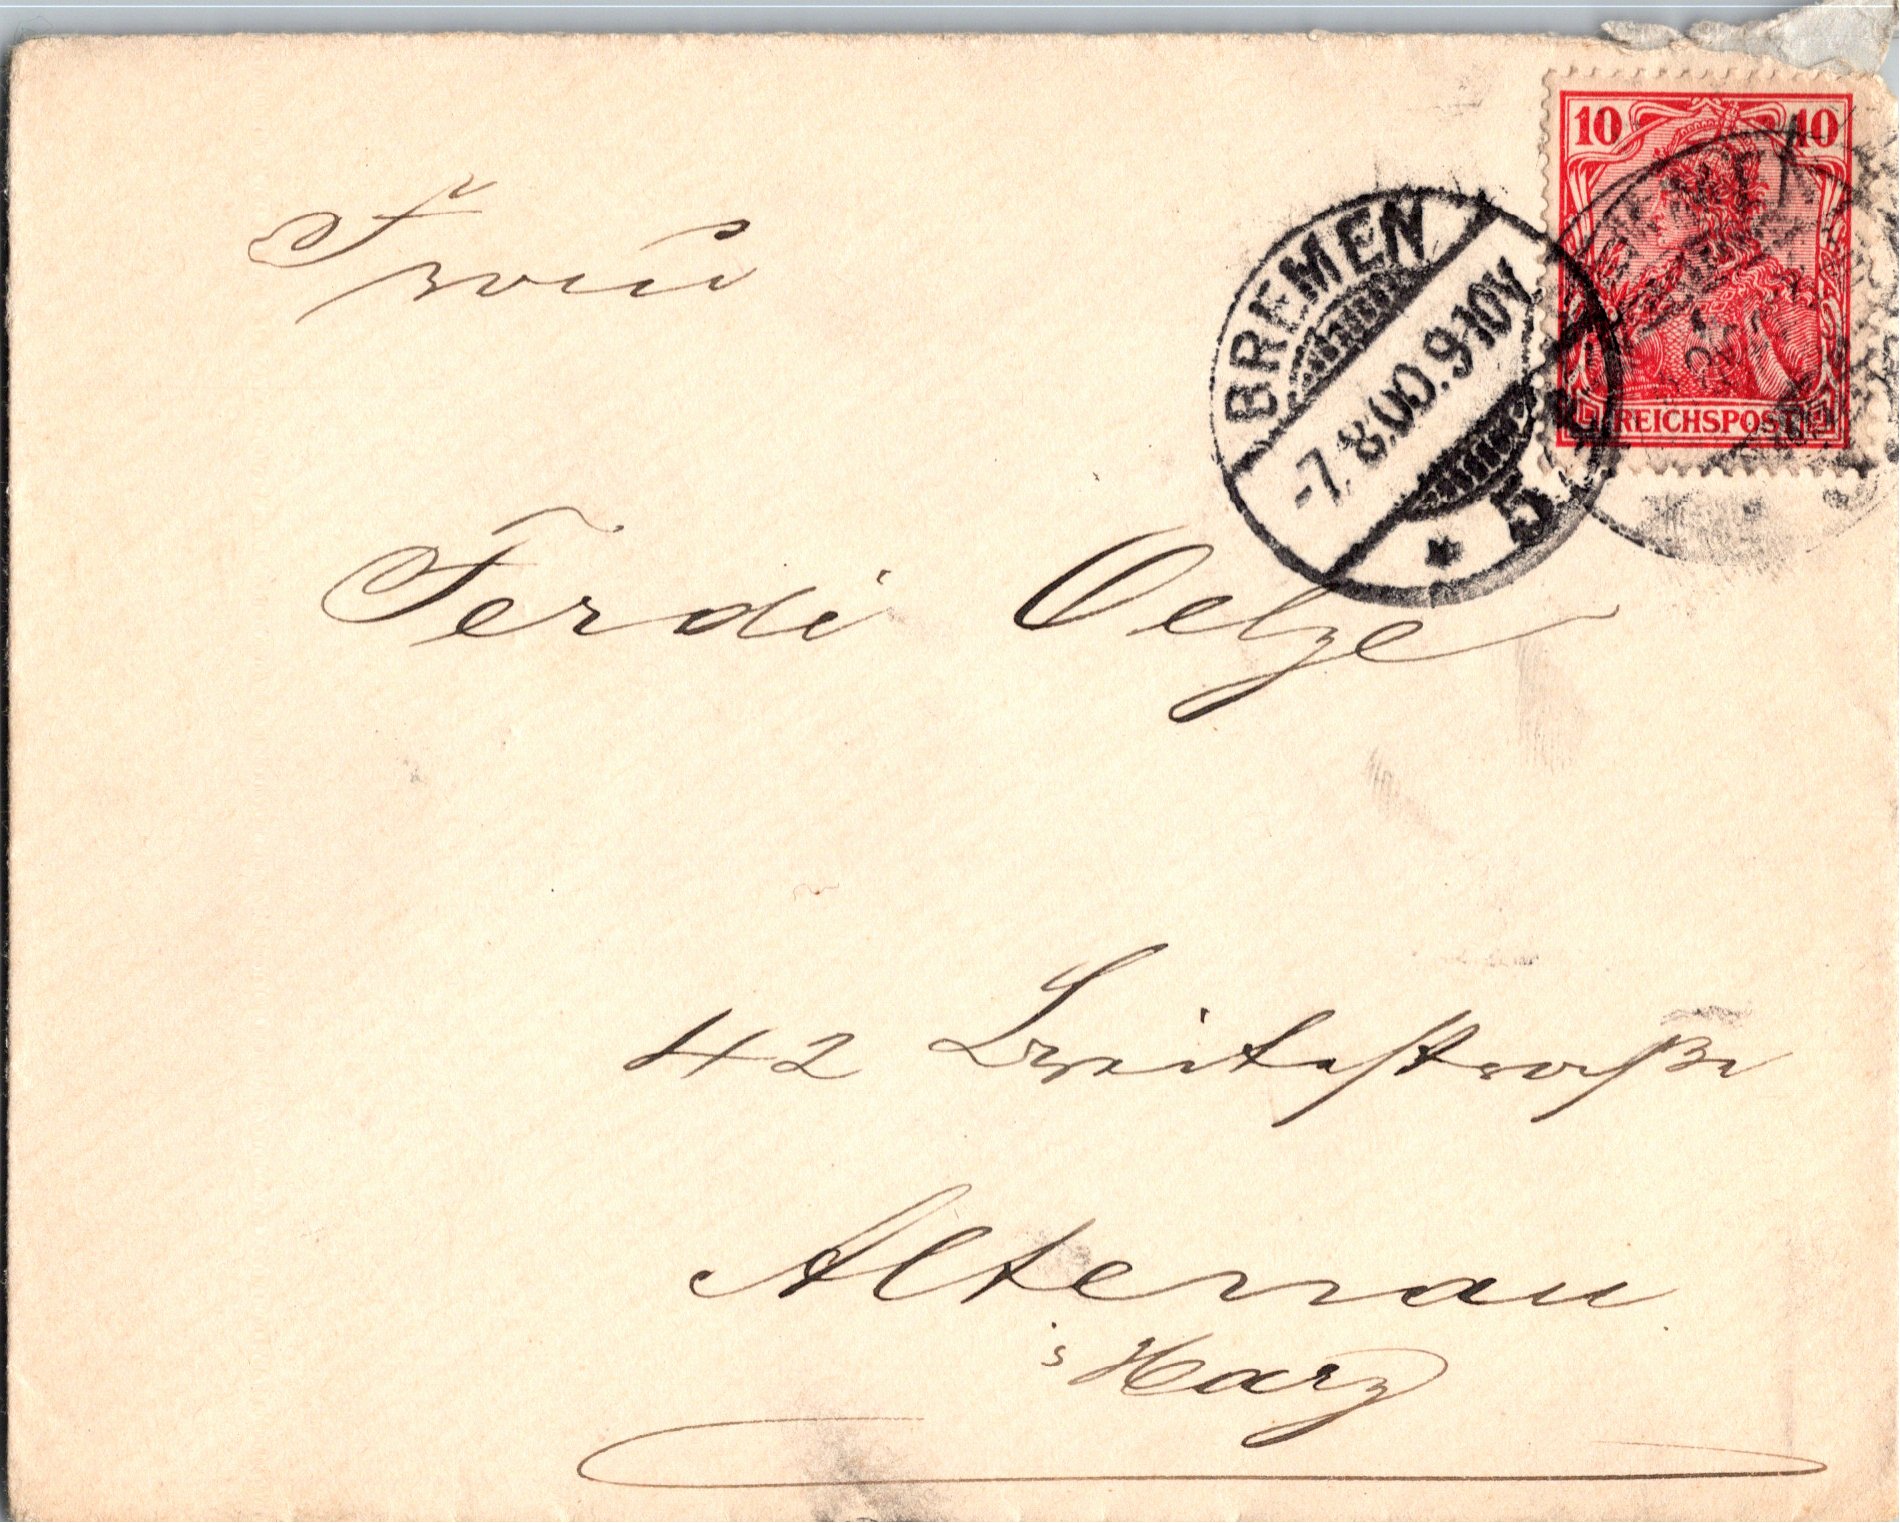 10 10
REICHSPOST
BREMEN
-7.8.00.9-10V.
* 5
Frau
Ferdi Oelze
42 Breitestraße
Altenau
i Harz